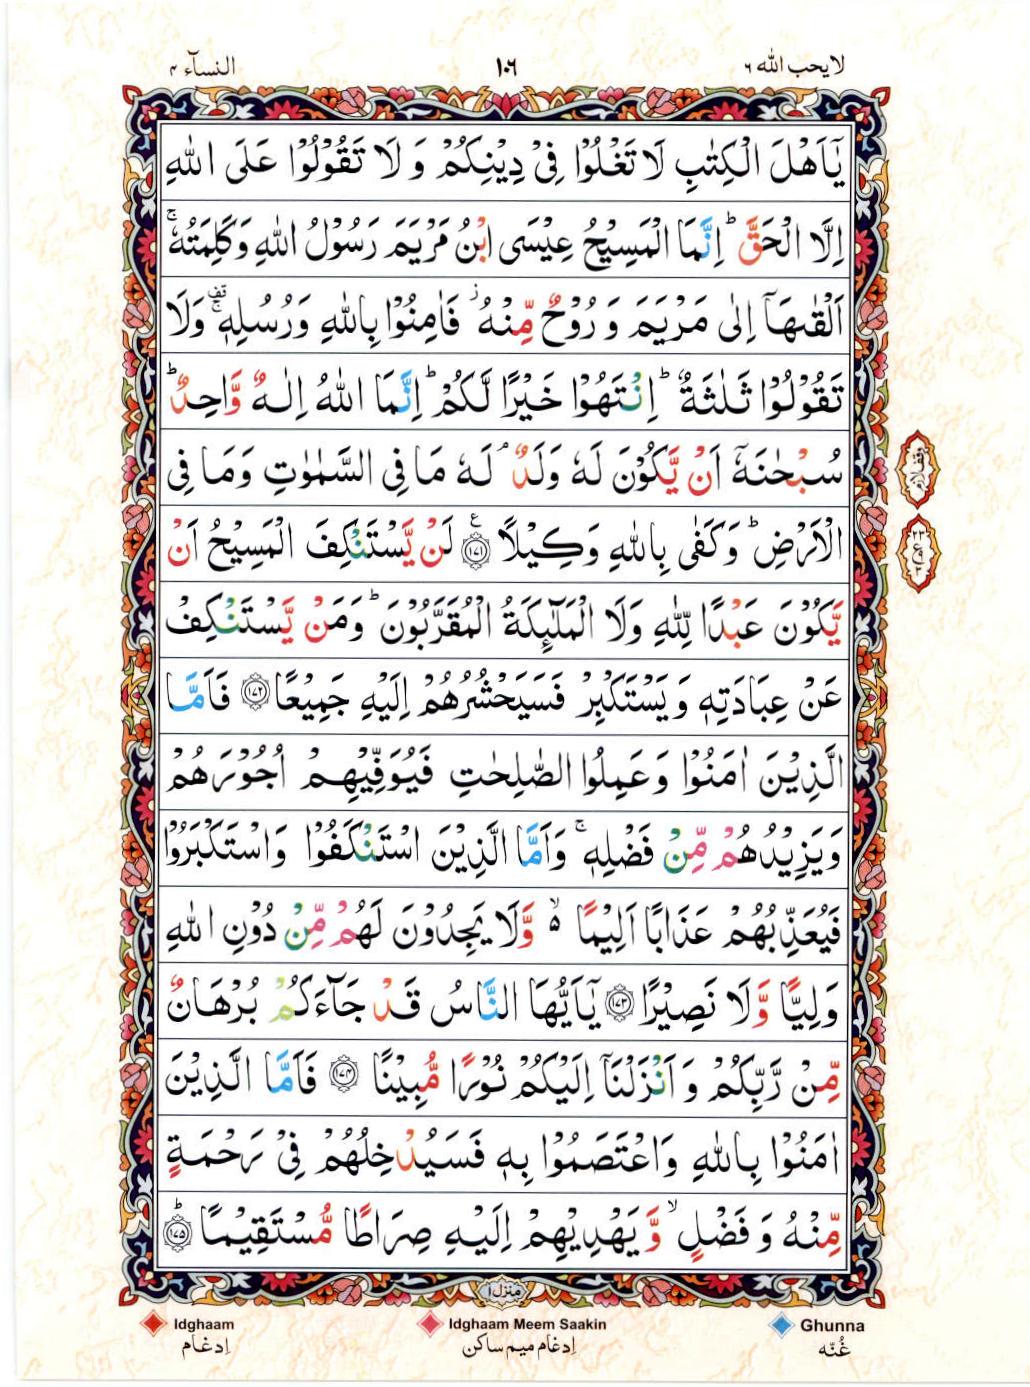 لایحب اللہ ۶ ۱۰۶ النسآء ۴
یٰۤاَهْلَ الْكِتٰبِ لَا تَغْلُوْا فِیْ دِیْنِكُمْ وَ لَا تَقُوْلُوْا عَلَی اللّٰهِ
اِلَّا الْحَقَّ ؕ اِنَّمَا الْمَسِیْحُ عِیْسَی ابْنُ مَرْیَمَ رَسُوْلُ اللّٰهِ وَكَلِمَتُهٗ ۚ
اَلْقٰىهَاۤ اِلٰی مَرْیَمَ وَ رُوْحٌ مِّنْهُ ؗ فَاٰمِنُوْا بِاللّٰهِ وَرُسُلِهٖ ۚ۫ وَلَا
تَقُوْلُوْا ثَلٰثَةٌ ؕ اِنْتَهُوْا خَیْرًا لَّكُمْ ؕ اِنَّمَا اللّٰهُ اِلٰهٌ وَّاحِدٌ ؕ
سُبْحٰنَهٗۤ اَنْ یَّكُوْنَ لَهٗ وَلَدٌ ۘ لَهٗ مَا فِی السَّمٰوٰتِ وَمَا فِی
الْاَرْضِ ؕ وَكَفٰی بِاللّٰهِ وَكِیْلًا ﴿۱۷۱﴾ ع لَنْ یَّسْتَنْكِفَ الْمَسِیْحُ اَنْ
یَّكُوْنَ عَبْدًا لِّلّٰهِ وَلَا الْمَلٰٓىِٕكَةُ الْمُقَرَّبُوْنَ ؕ وَمَنْ یَّسْتَنْكِفْ
عَنْ عِبَادَتِهٖ وَیَسْتَكْبِرْ فَسَیَحْشُرُهُمْ اِلَیْهِ جَمِیْعًا ﴿۱۷۲﴾ فَاَمَّا
الَّذِیْنَ اٰمَنُوْا وَعَمِلُوا الصّٰلِحٰتِ فَیُوَفِّیْهِمْ اُجُوْرَهُمْ
وَیَزِیْدُهُمْ مِّنْ فَضْلِهٖ ۚ وَاَمَّا الَّذِیْنَ اسْتَنْكَفُوْا وَاسْتَكْبَرُوْا
فَیُعَذِّبُهُمْ عَذَابًا اَلِیْمًا ۙ۬ وَّلَا یَجِدُوْنَ لَهُمْ مِّنْ دُوْنِ اللّٰهِ
وَلِیًّا وَّلَا نَصِیْرًا ﴿۱۷۳﴾ یٰۤاَیُّهَا النَّاسُ قَدْ جَآءَكُمْ بُرْهَانٌ
مِّنْ رَّبِّكُمْ وَ اَنْزَلْنَاۤ اِلَیْكُمْ نُوْرًا مُّبِیْنًا ﴿۱۷۴﴾ فَاَمَّا الَّذِیْنَ
اٰمَنُوْا بِاللّٰهِ وَاعْتَصَمُوْا بِهٖ فَسَیُدْخِلُهُمْ فِیْ رَحْمَةٍ
مِّنْهُ وَ فَضْلٍ ۙ وَّ یَهْدِیْهِمْ اِلَیْهِ صِرَاطًا مُّسْتَقِیْمًا ﴿۱۷۵﴾ ؕ
منزل ۱
Idghaam Idghaam Meem Saakin Ghunna
اِدغام اِدغام میم ساکن غُنّہ